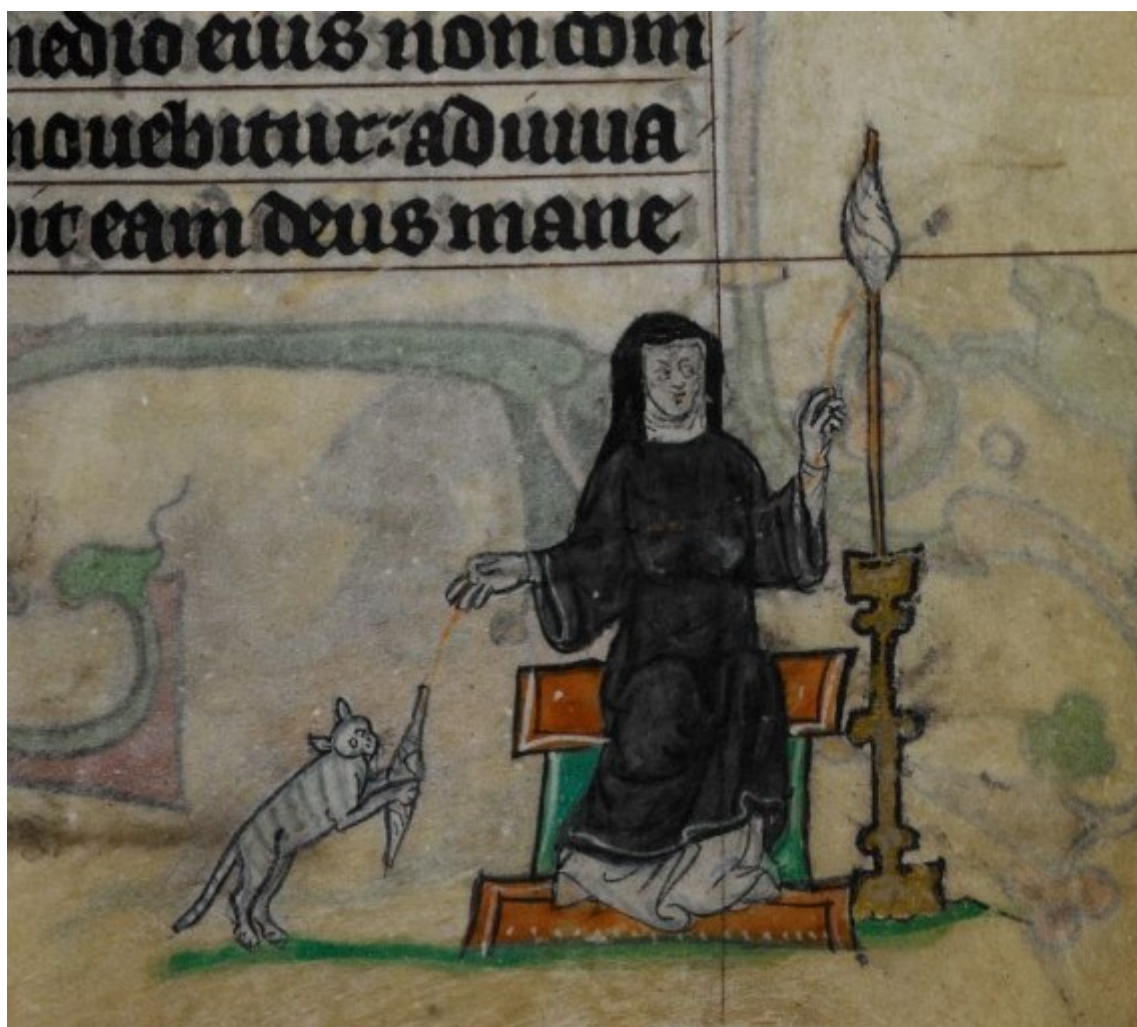 medio eius non com
mouebitur: adiuua
bit eam deus mane